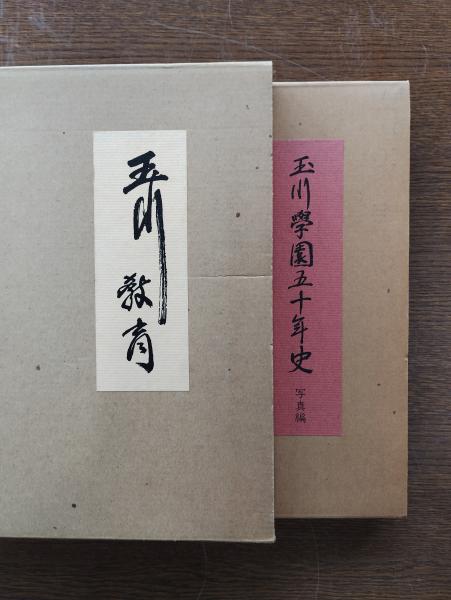 玉川教育
玉川學園五十年史
写真編